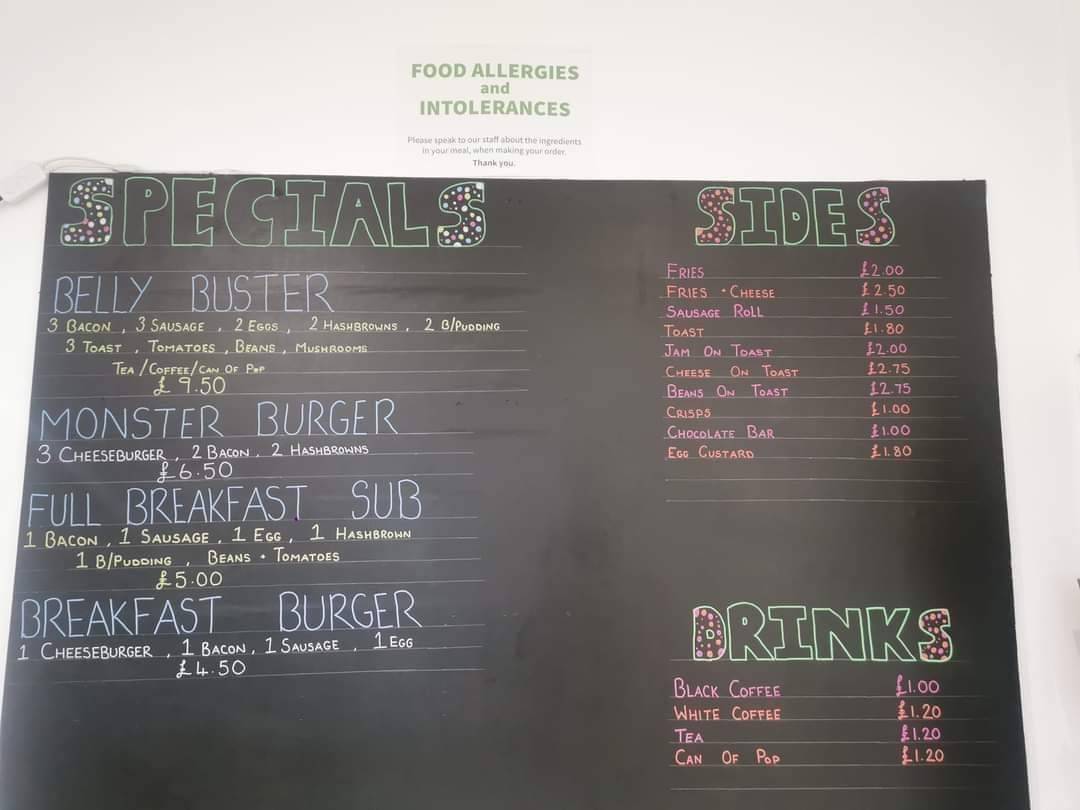 FOOD ALLERGIES
and
INTOLERANCES
Please speak to our staff about the ingredients
in your meal, when making your order.
Thank you.
SPECIALS
BELLY BUSTER
3 BACON , 3 SAUSAGE , 2 EGGS , 2 HASHBROWNS , 2 B/PUDDING
3 TOAST , TOMATOES , BEANS , MUSHROOMS
TEA/COFFEE/CAN OF POP
£9.50
MONSTER BURGER
3 CHEESEBURGER , 2 BACON , 2 HASHBROWNS
£6.50
FULL BREAKFAST SUB
1 BACON , 1 SAUSAGE , 1 EGG , 1 HASHBROWN
1 B/PUDDING , BEANS + TOMATOES
£5.00
BREAKFAST BURGER
1 CHEESEBURGER , 1 BACON , 1 SAUSAGE , 1 EGG
£4.50
SIDES
FRIES £2.00
FRIES + CHEESE £2.50
SAUSAGE ROLL £1.50
TOAST £1.80
JAM ON TOAST £2.00
CHEESE ON TOAST £2.75
BEANS ON TOAST £2.75
CRISPS £1.00
CHOCOLATE BAR £1.00
EGG CUSTARD £1.80
DRINKS
BLACK COFFEE £1.00
WHITE COFFEE £1.20
TEA £1.20
CAN OF POP £1.20